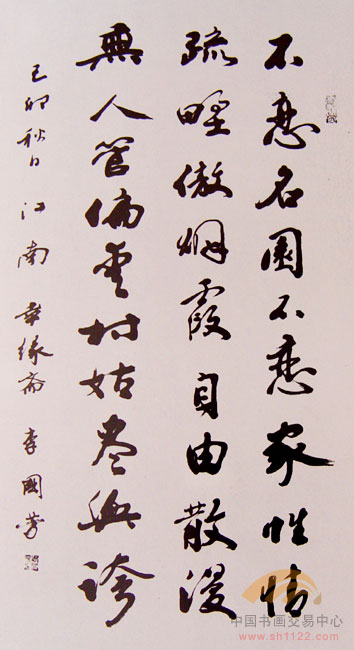 不恋名園不恋家性情
疏野傲烟霞自由散漫
無人管偏愛村姑盡興誇
己卯秋日江南幸緣齋李國芳
中国书画交易中心
www.sh1122.com